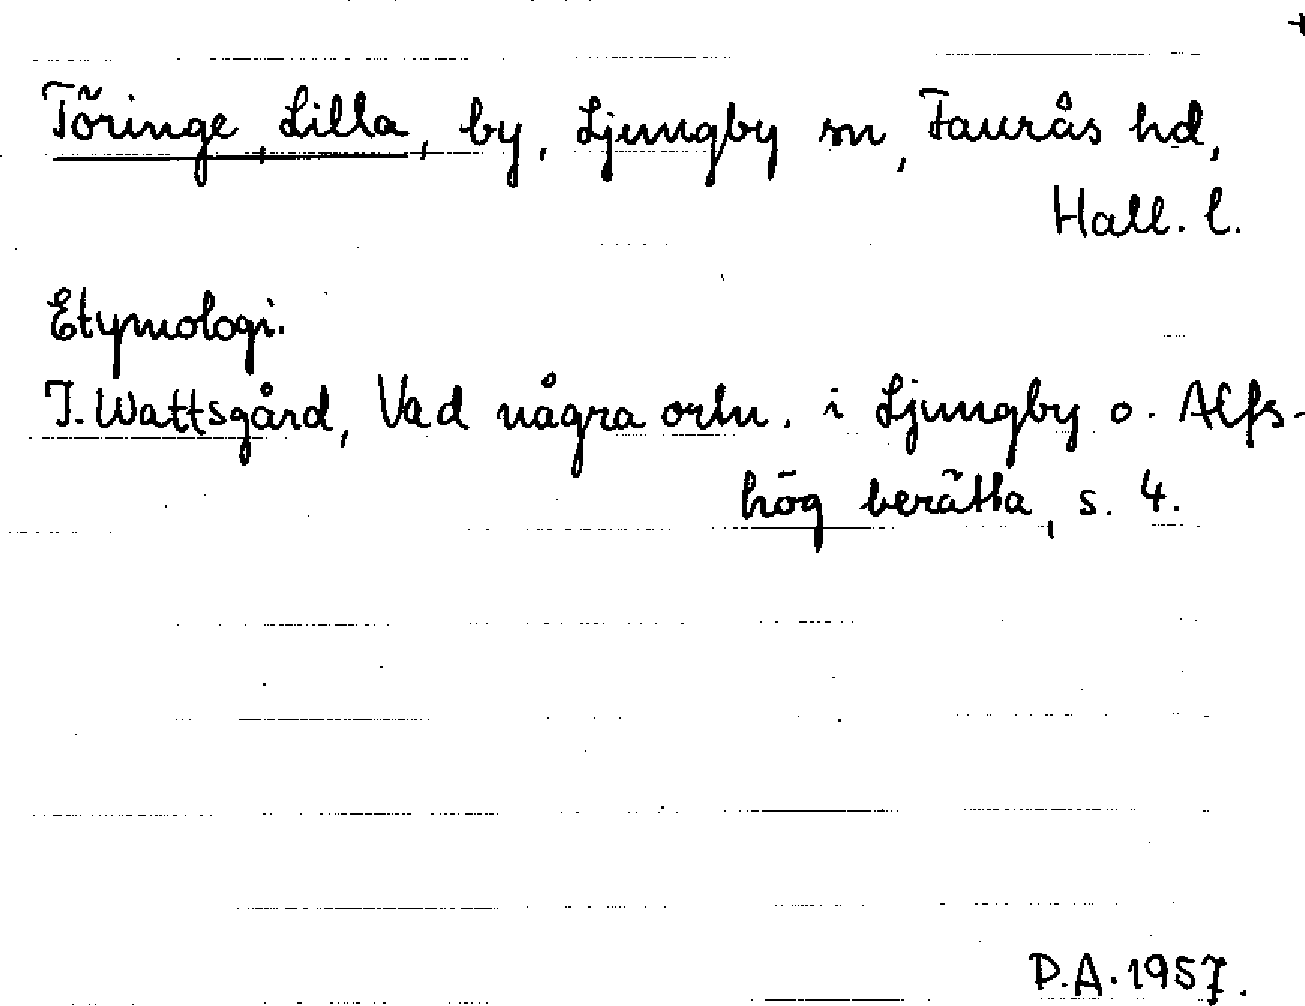 Töringe, Lilla, by, Ljungby sn, Faurås hd,
Hall. l.
Etymologi.
J. Wattsgård, Vad några ortn. i Ljungby o. Alfs-
hög berätta, s. 4.
P.A. 1957.